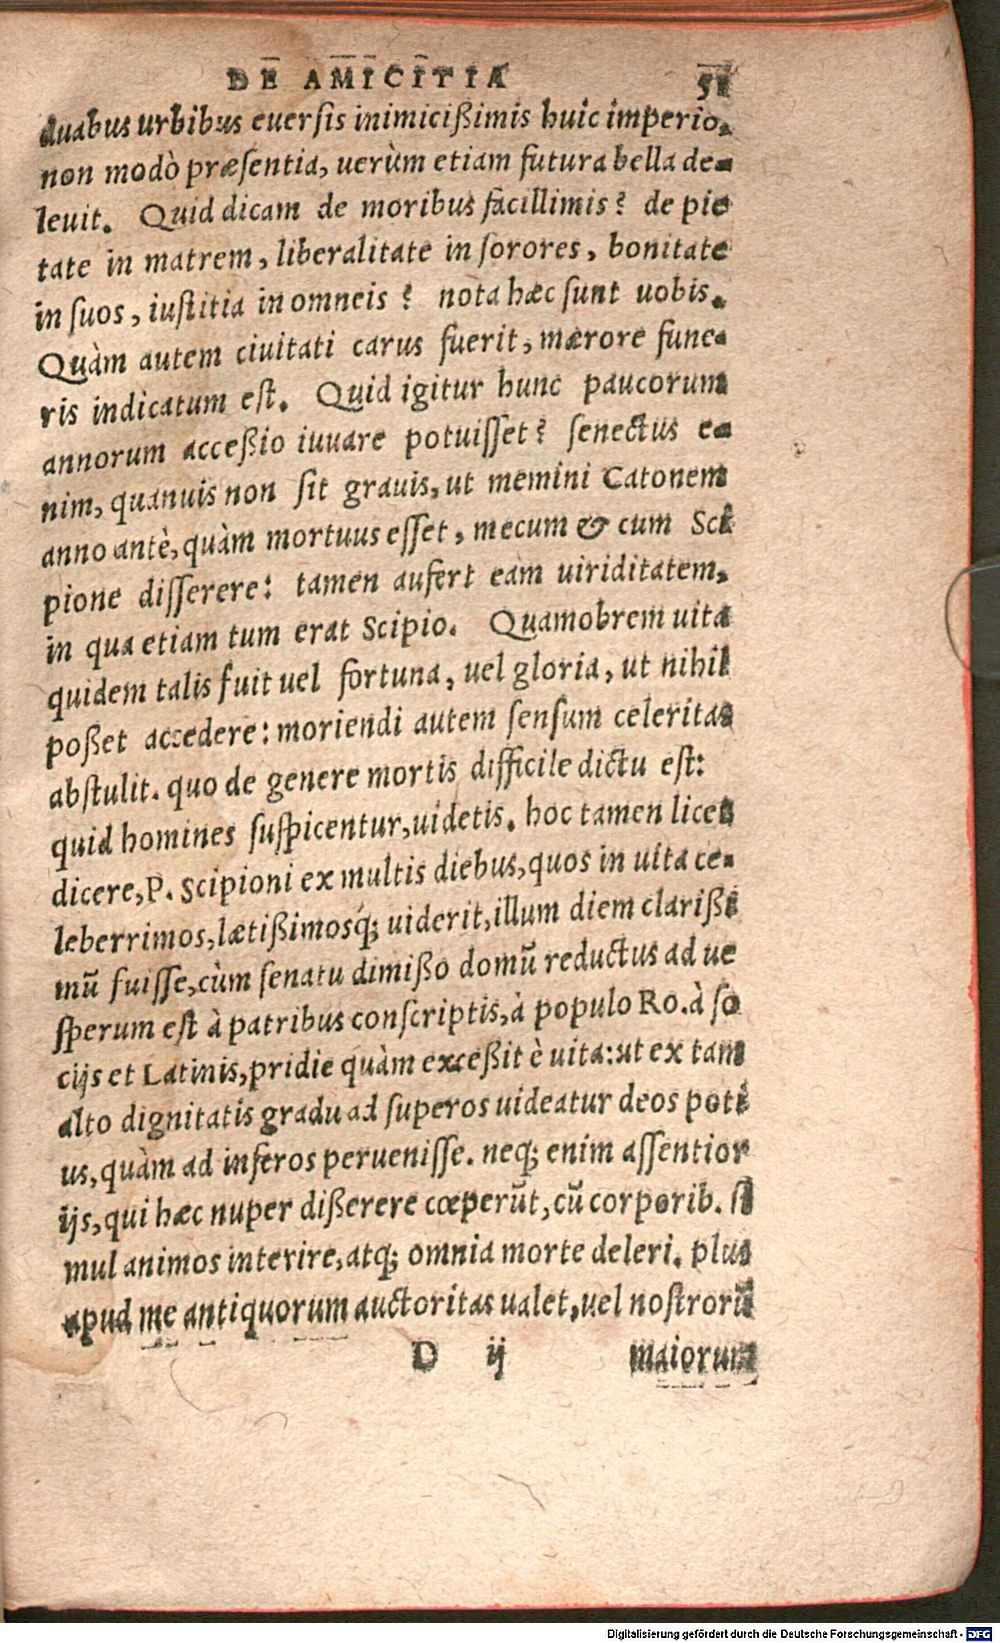 DE AMICITIA 51
duabus urbibus euersis inimicißimis huic imperio,
non modò præsentia, uerùm etiam futura bella de-
leuit. Quid dicam de moribus facillimis? de pie
tate in matrem, liberalitate in sorores, bonitate
in suos, iustitia in omneis? nota hæc sunt uobis.
Quàm autem ciuitati carus fuerit, mærore fune-
ris indicatum est. Quid igitur hunc paucorum
annorum acceßio iuuare potuisset? senectus e-
nim, quanuis non sit grauis, ut memini Catonem
anno antè, quàm mortuus esset, mecum & cum Sci
pione disserere: tamen aufert eam uiriditatem,
in qua etiam tum erat Scipio. Quamobrem uita
quidem talis fuit uel fortuna, uel gloria, ut nihil
poßet accedere: moriendi autem sensum celeritas
abstulit. quo de genere mortis difficile dictu est:
quid homines suspicentur, uidetis. hoc tamen licet
dicere, P. Scipioni ex multis diebus, quos in uita ce-
leberrimos, lætißimosq́; uiderit, illum diem clarißi
mū fuisse, cùm senatu dimißo domū reductus ad ue
sperum est à patribus conscriptis, à populo Ro. à so
cijs et Latinis, pridie quàm exceßit è uita: ut ex tam
alto dignitatis gradu ad superos uideatur deos poti
us, quàm ad inferos peruenisse. neq; enim assentior
ijs, qui hæc nuper dißerere cœperūt, cū corporib. si
mul animos interire, atq; omnia morte deleri. plus
apud me antiquorum auctoritas ualet, uel nostrorū
D ij maiorum
Digitalisierung gefördert durch die Deutsche Forschungsgemeinschaft - DFG